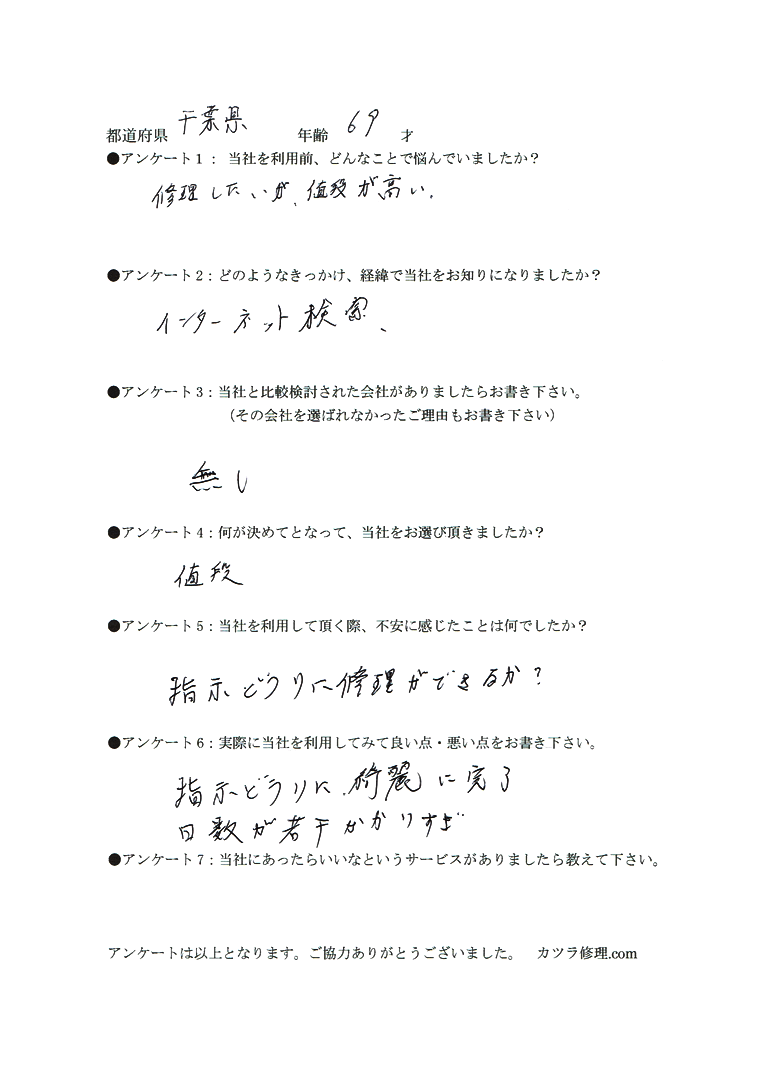 都道府県 千葉県 年齢 69 才
●アンケート1： 当社を利用前、どんなことで悩んでいましたか？
修理したいが、値段が高い。
●アンケート2：どのようなきっかけ、経緯で当社をお知りになりましたか？
インターネット検索、
●アンケート3：当社と比較検討された会社がありましたらお書き下さい。
（その会社を選ばれなかったご理由もお書き下さい）
無し
●アンケート4：何が決めてとなって、当社をお選び頂きましたか？
値段
●アンケート5：当社を利用して頂く際、不安に感じたことは何でしたか？
指示どうりに修理ができるか？
●アンケート6：実際に当社を利用してみて良い点・悪い点をお書き下さい。
指示どうりに、綺麗に完了
日数が若干かかりすぎ
●アンケート7：当社にあったらいいなというサービスがありましたら教えて下さい。
アンケートは以上となります。ご協力ありがとうございました。 カツラ修理.com